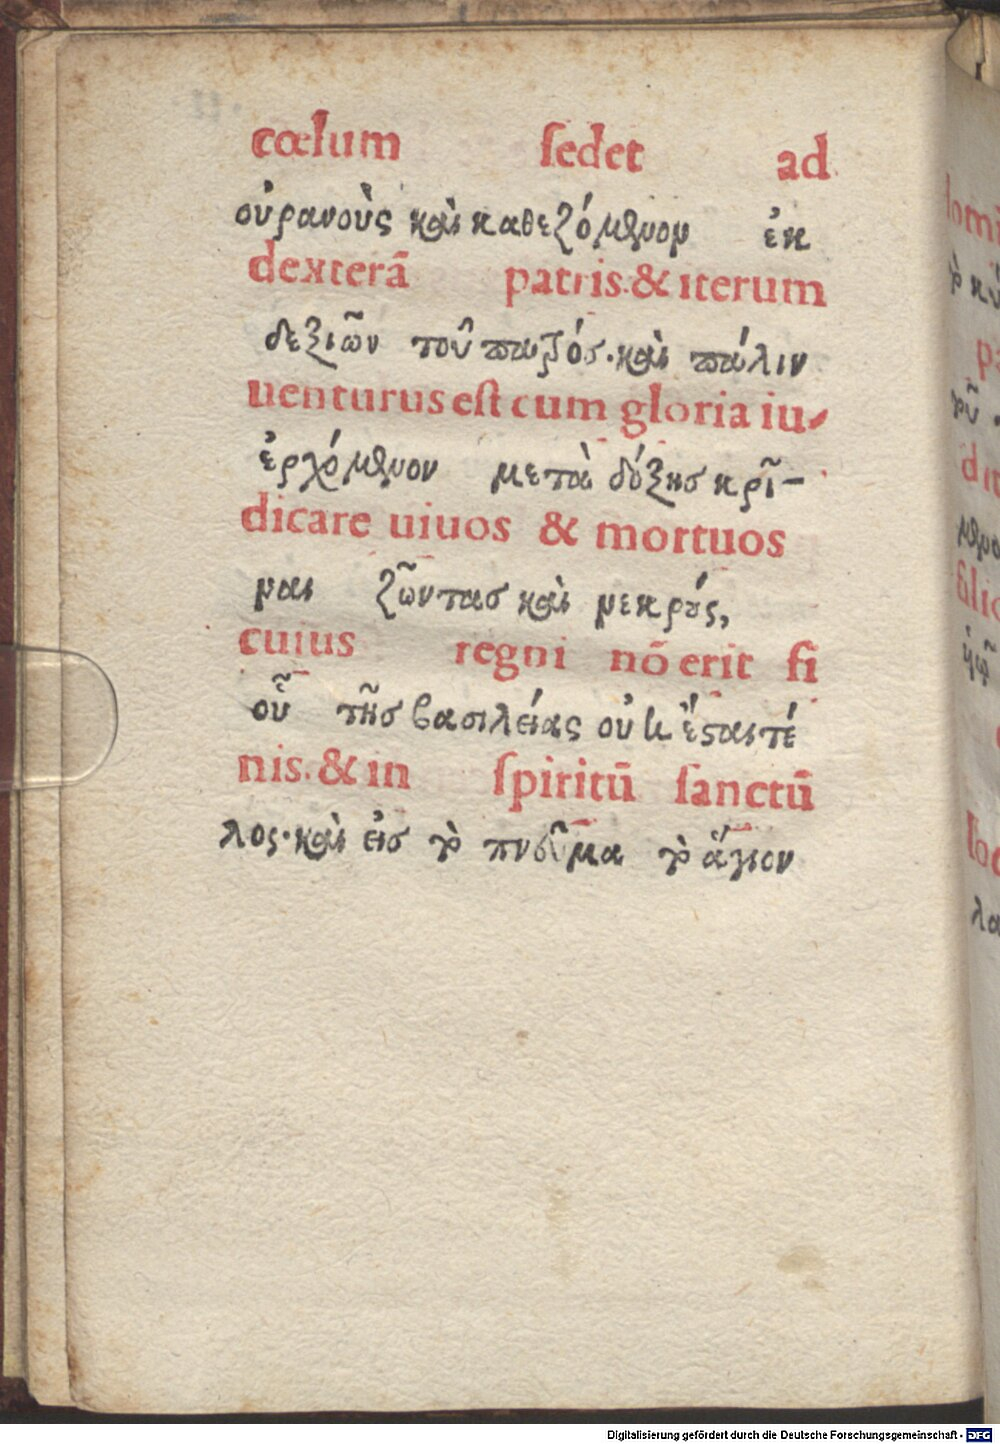 cœlum sedet ad
οὐρανοὺς καὶ καθεζόμενον ἐκ
dexterã patris.& iterum
δεξιῶν τοῦ πατρός·καὶ πάλιν
uenturus est cum gloria iu-
ἐρχόμενον μετὰ δόξης κρῖ-
dicare uiuos & mortuos
ναι ζῶντας καὶ νεκρούς,
cuius regni nõ erit fi
οὗ τῆς βασιλείας οὐκ ἔσται τέ
nis.& in spiritũ sanctũ
λος·καὶ εἰς τὸ πνεῦμα τὸ ἅγιον
Digitalisierung gefördert durch die Deutsche Forschungsgemeinschaft - DFG